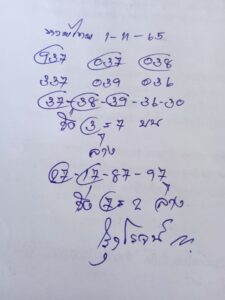 1-11-65
937 037 038
337 039 036
37-38-39-36-30
3=7 บน
ล่าง
27-17-87-97
7=2 ล่าง